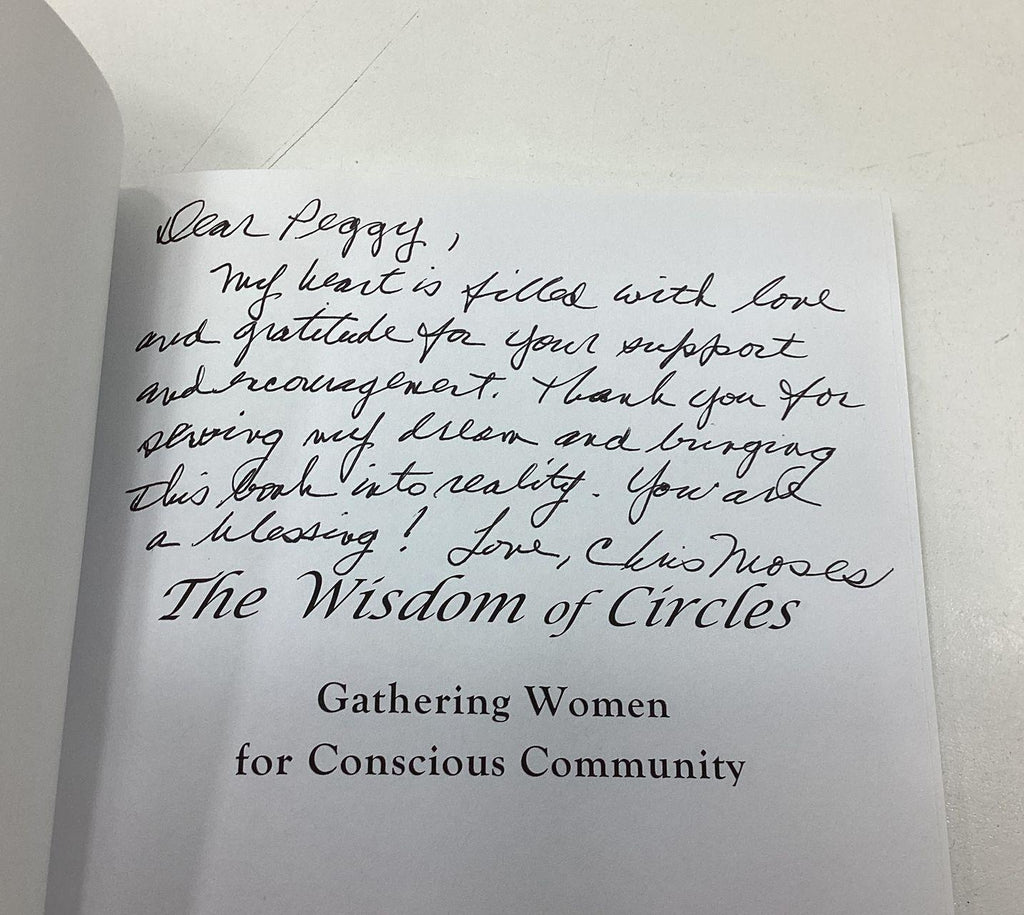 Dear Peggy,
My heart is filled with love
and gratitude for your support
and encouragement. Thank you for
serving my dream and bringing
this book into reality. You are
a blessing! Love, Chris Moses
The Wisdom of Circles
Gathering Women
for Conscious Community